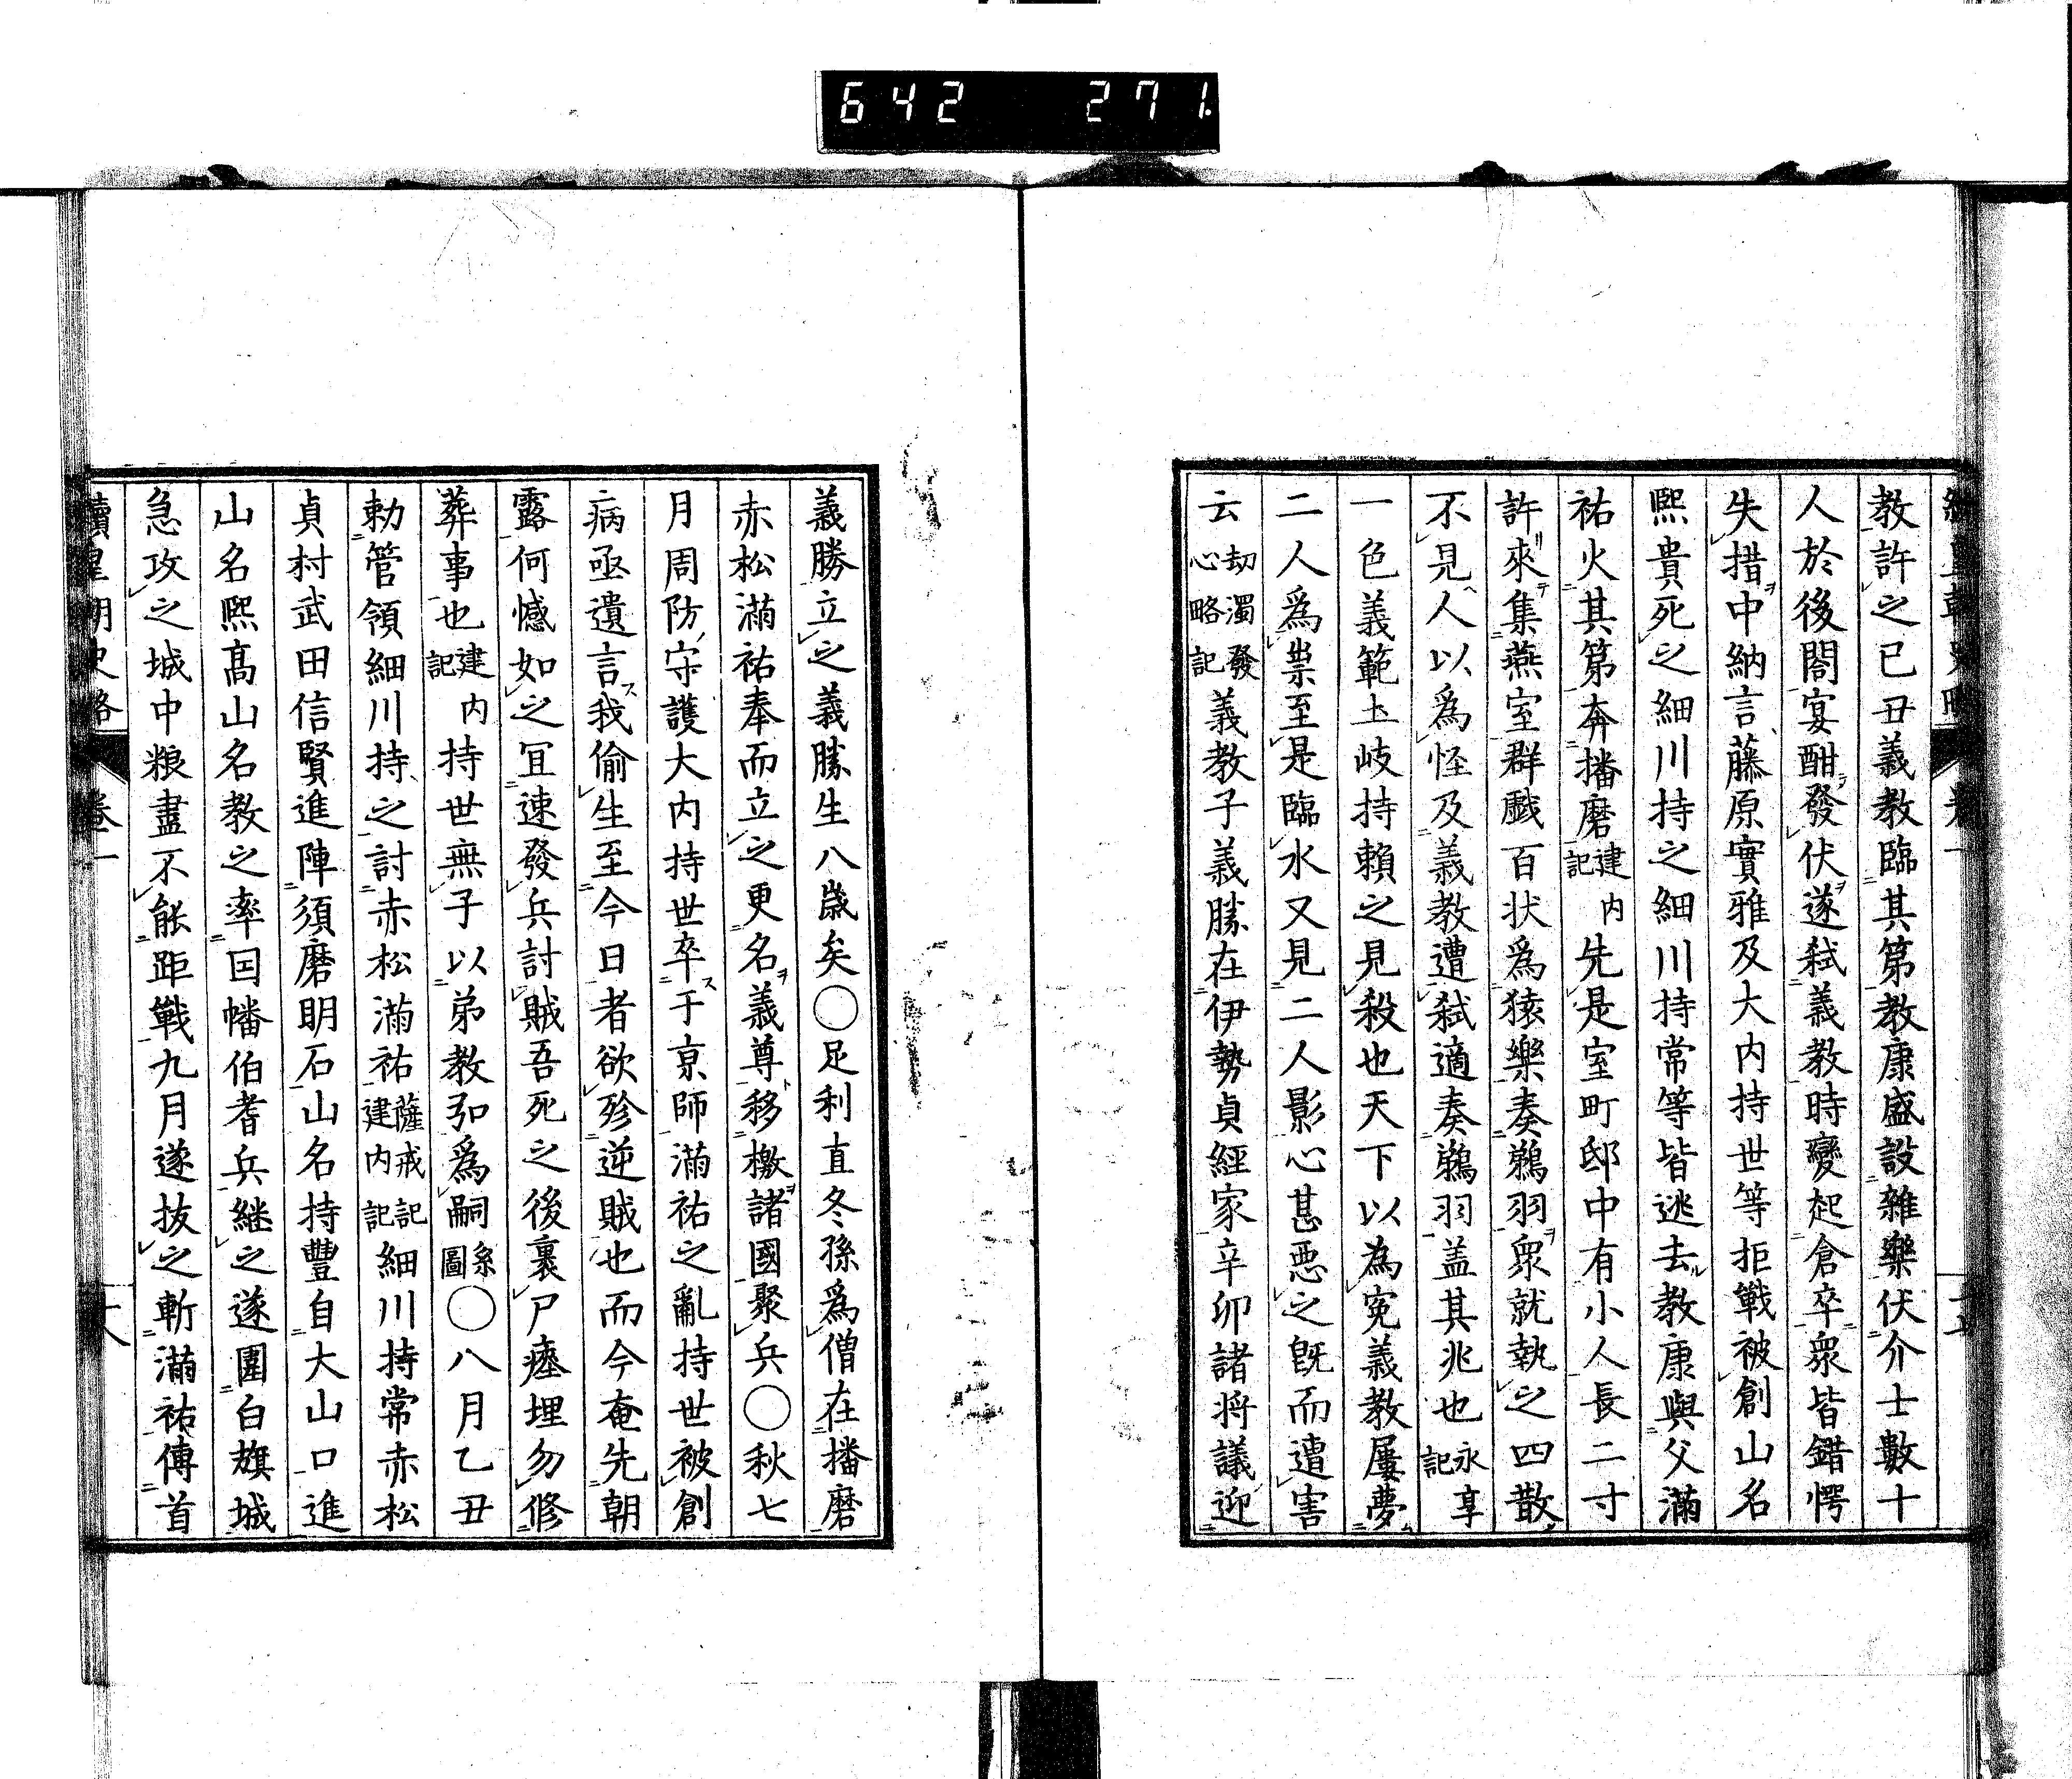 642 271
教許之已丑義教臨其第教康盛設雜樂伏介士數十
人於後閤宴酣發伏遂弑義教時變起倉卒衆皆錯愕
失措中納言藤原實雅及大內持世等拒戰被創山名
熙貴死之細川持之細川持常等皆逃去教康與父滿
祐火其第奔播磨建內記先是室町邸中有小人長二寸
許來集燕室群戲百狀爲猿樂奏鵜羽衆就執之四散
不見人以爲怪及義教遭弑適奏鵜羽盖其兆也永享記
一色義範土岐持賴之見殺也天下以為寃義教屢夢
二人爲祟至是臨水又見二人影心甚惡之旣而遭害
云刧濁發心略記義教子義勝在伊勢貞經家辛卯諸将議迎
義勝立之義勝生八歲矣○足利直冬孫爲僧在播磨
赤松滿祐奉而立之更名義尊移檄諸國聚兵○秋七
月周防守護大內持世卒于京師滿祐之亂持世被創
病亟遺言我偷生至今日者欲殄逆賊也而今奄先朝
露何憾如之冝速發兵討賊吾死之後裹尸瘞埋勿修
葬事也建內記持世無子以弟教弘爲嗣系圖○八月乙丑
勅管領細川持之討赤松滿祐薩戒記建內記細川持常赤松
貞村武田信賢進陣須磨明石山名持豐自大山口進
山名熙高山名教之率因幡伯耆兵継之遂圍白旗城
急攻之城中粮盡不能距戰九月遂拔之斬滿祐傳首
續皇朝史略 卷一 十八